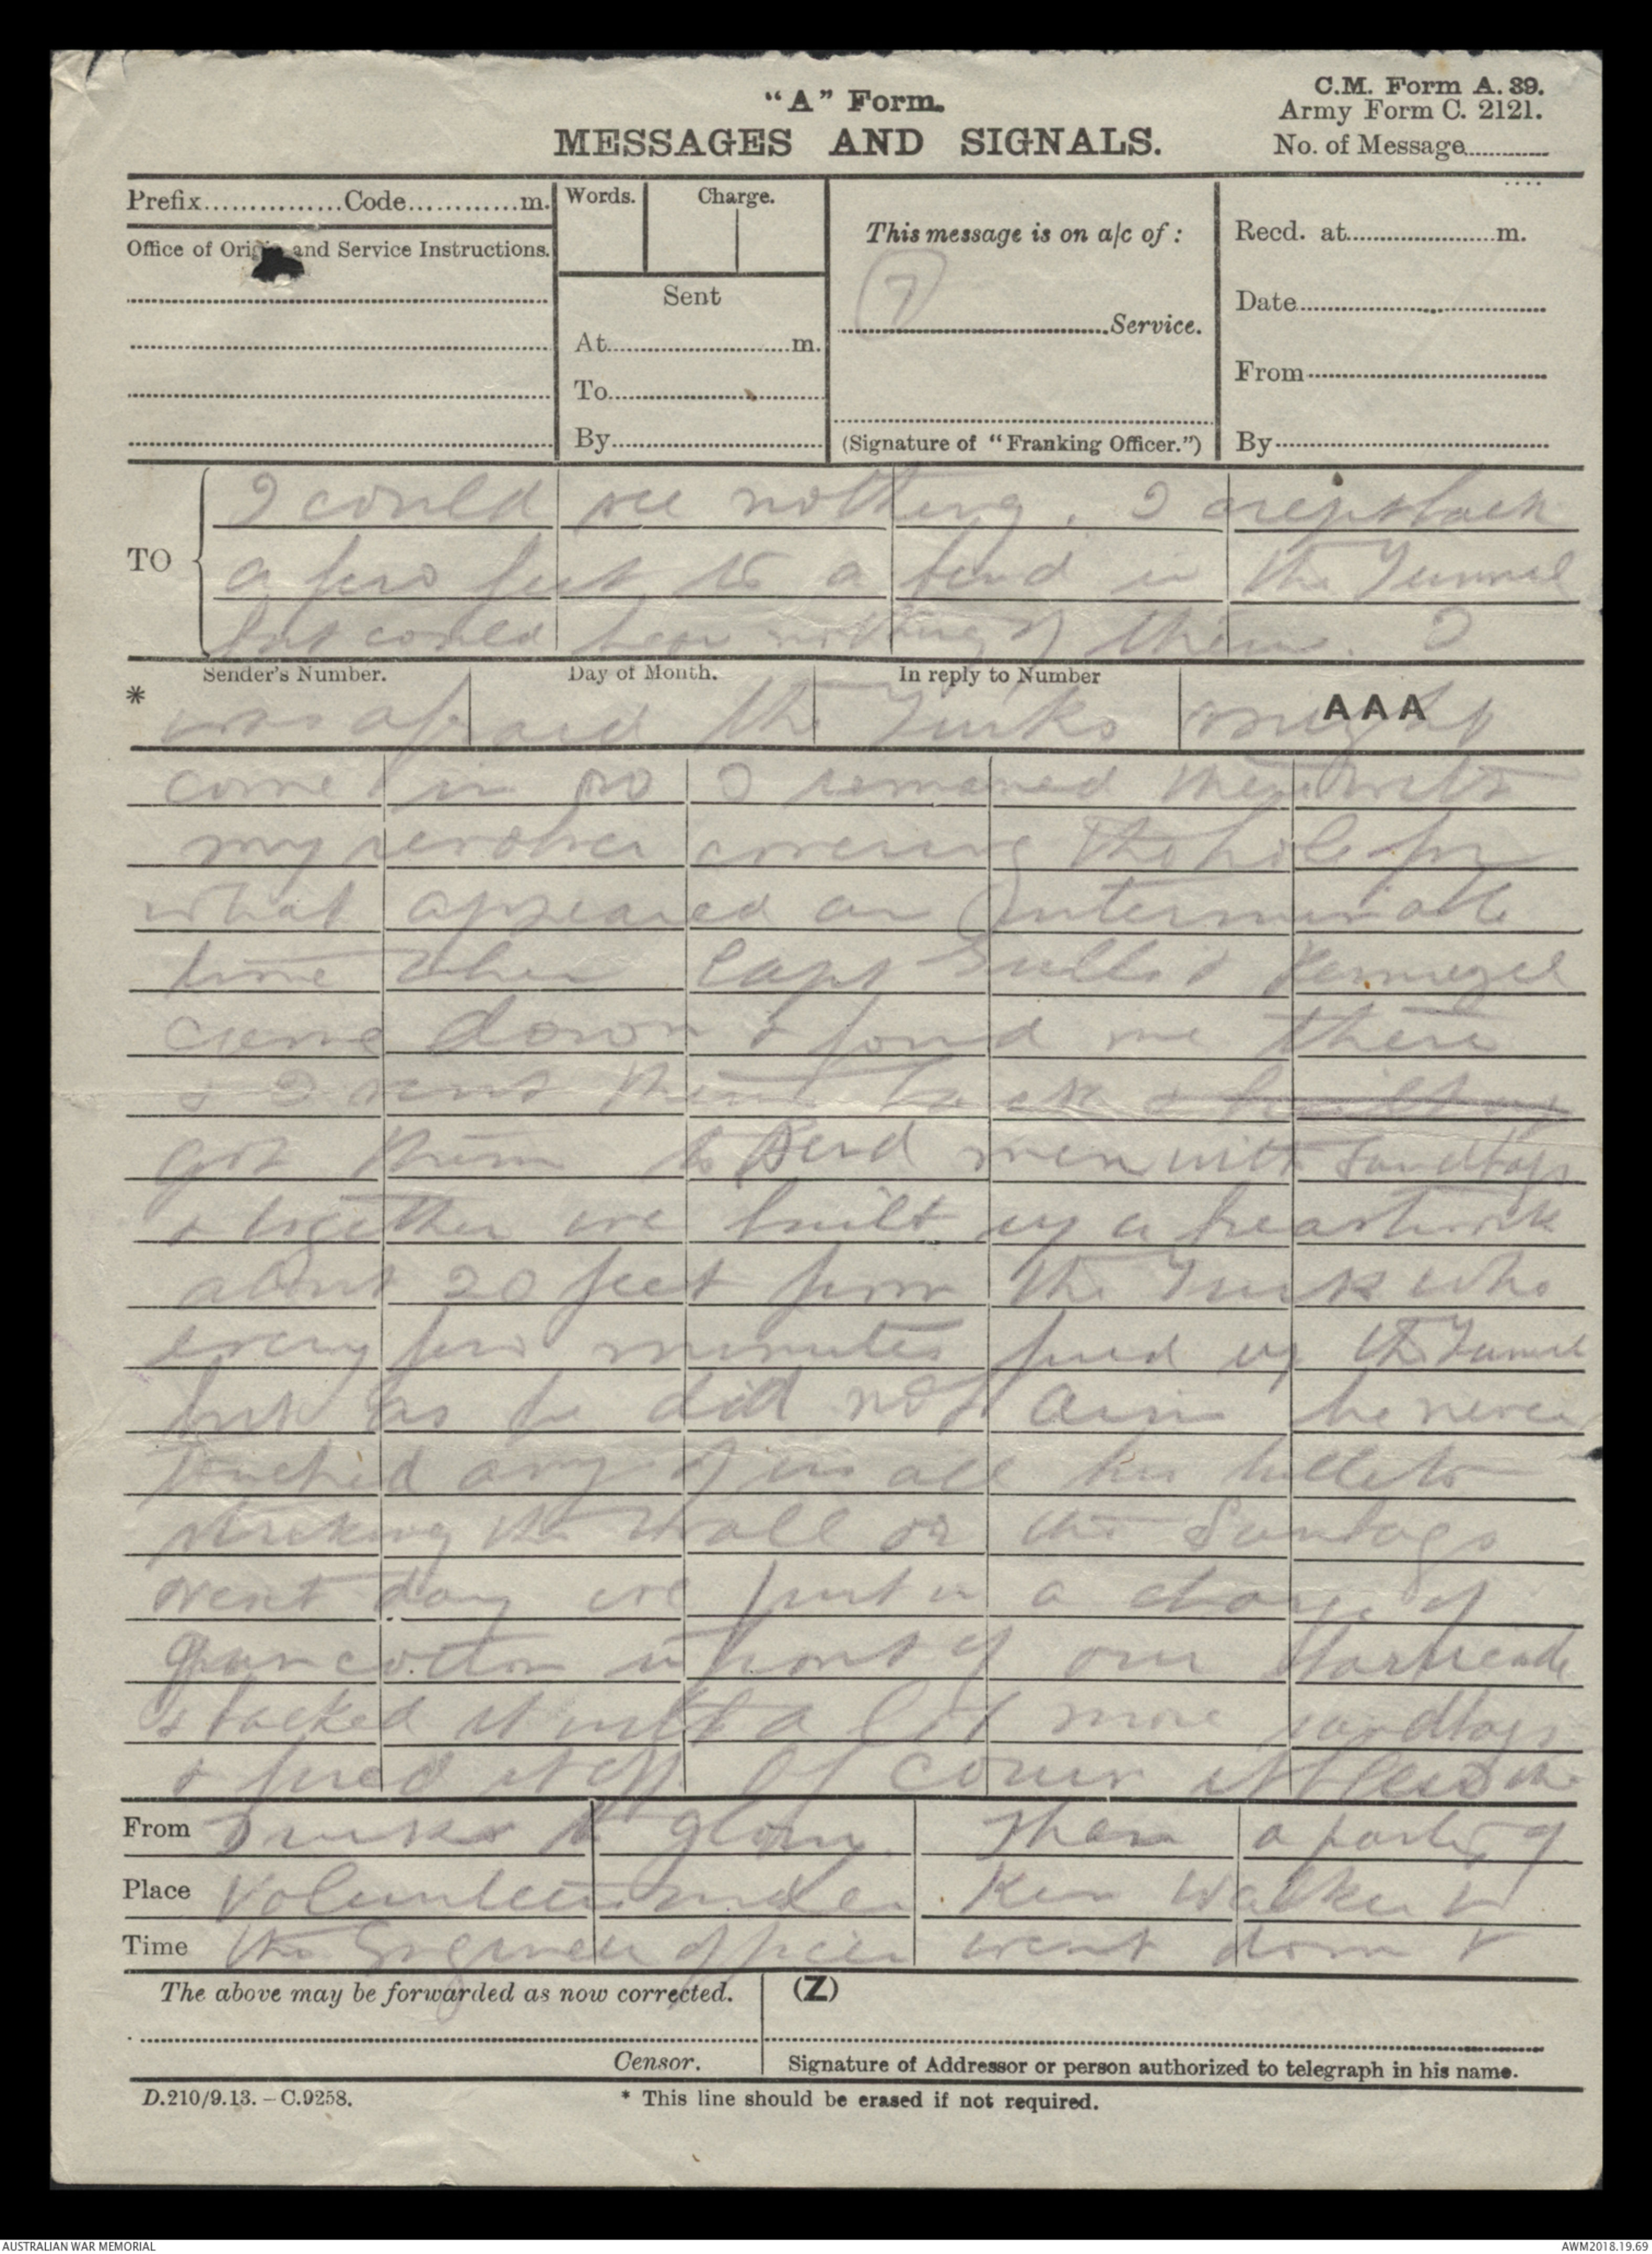 "A" Form.
MESSAGES AND SIGNALS.
C.M. Form A. 39.
Army Form C. 2121.
No. of Message
Prefix Code m.
Words. Charge.
This message is on a/c of :
Recd. at m.
Office of Origin and Service Instructions.
Sent
7
Service.
Date
At m.
From
To
By
(Signature of "Franking Officer.")
By
TO
I could see nothing. I crept back
a few feet to a bend in the Tunnel
but could hear nothing of them. I
Sender's Number. Day of Month. In reply to Number
* AAA
was afraid the Turks might
come in so I remained there with
my revolver covering the hole for
what appeared an interminable
time when Capt &
came down & found me there
& I sent them back & built up
got them to send men with sandbags
& together we built up a breastwork
about 20 feet from the Turk who
every few minutes fired up the Tunnel
but as he did not aim he never
touched any of us all his bullets
striking the wall or the Sandbags
next day we put in a charge of
guncotton in front of our
& tacked it with a lot more sandbags
& fired it off. Of course it the
From Turks to glory. Then a party of
Place Volunteers under Ken Walker &
Time the Engineer officer went down &
The above may be forwarded as now corrected. (Z)
Censor. Signature of Addressor or person authorized to telegraph in his name.
D.210/9.13. – C.9258. * This line should be erased if not required.
AUSTRALIAN WAR MEMORIAL AWM2018.19.69